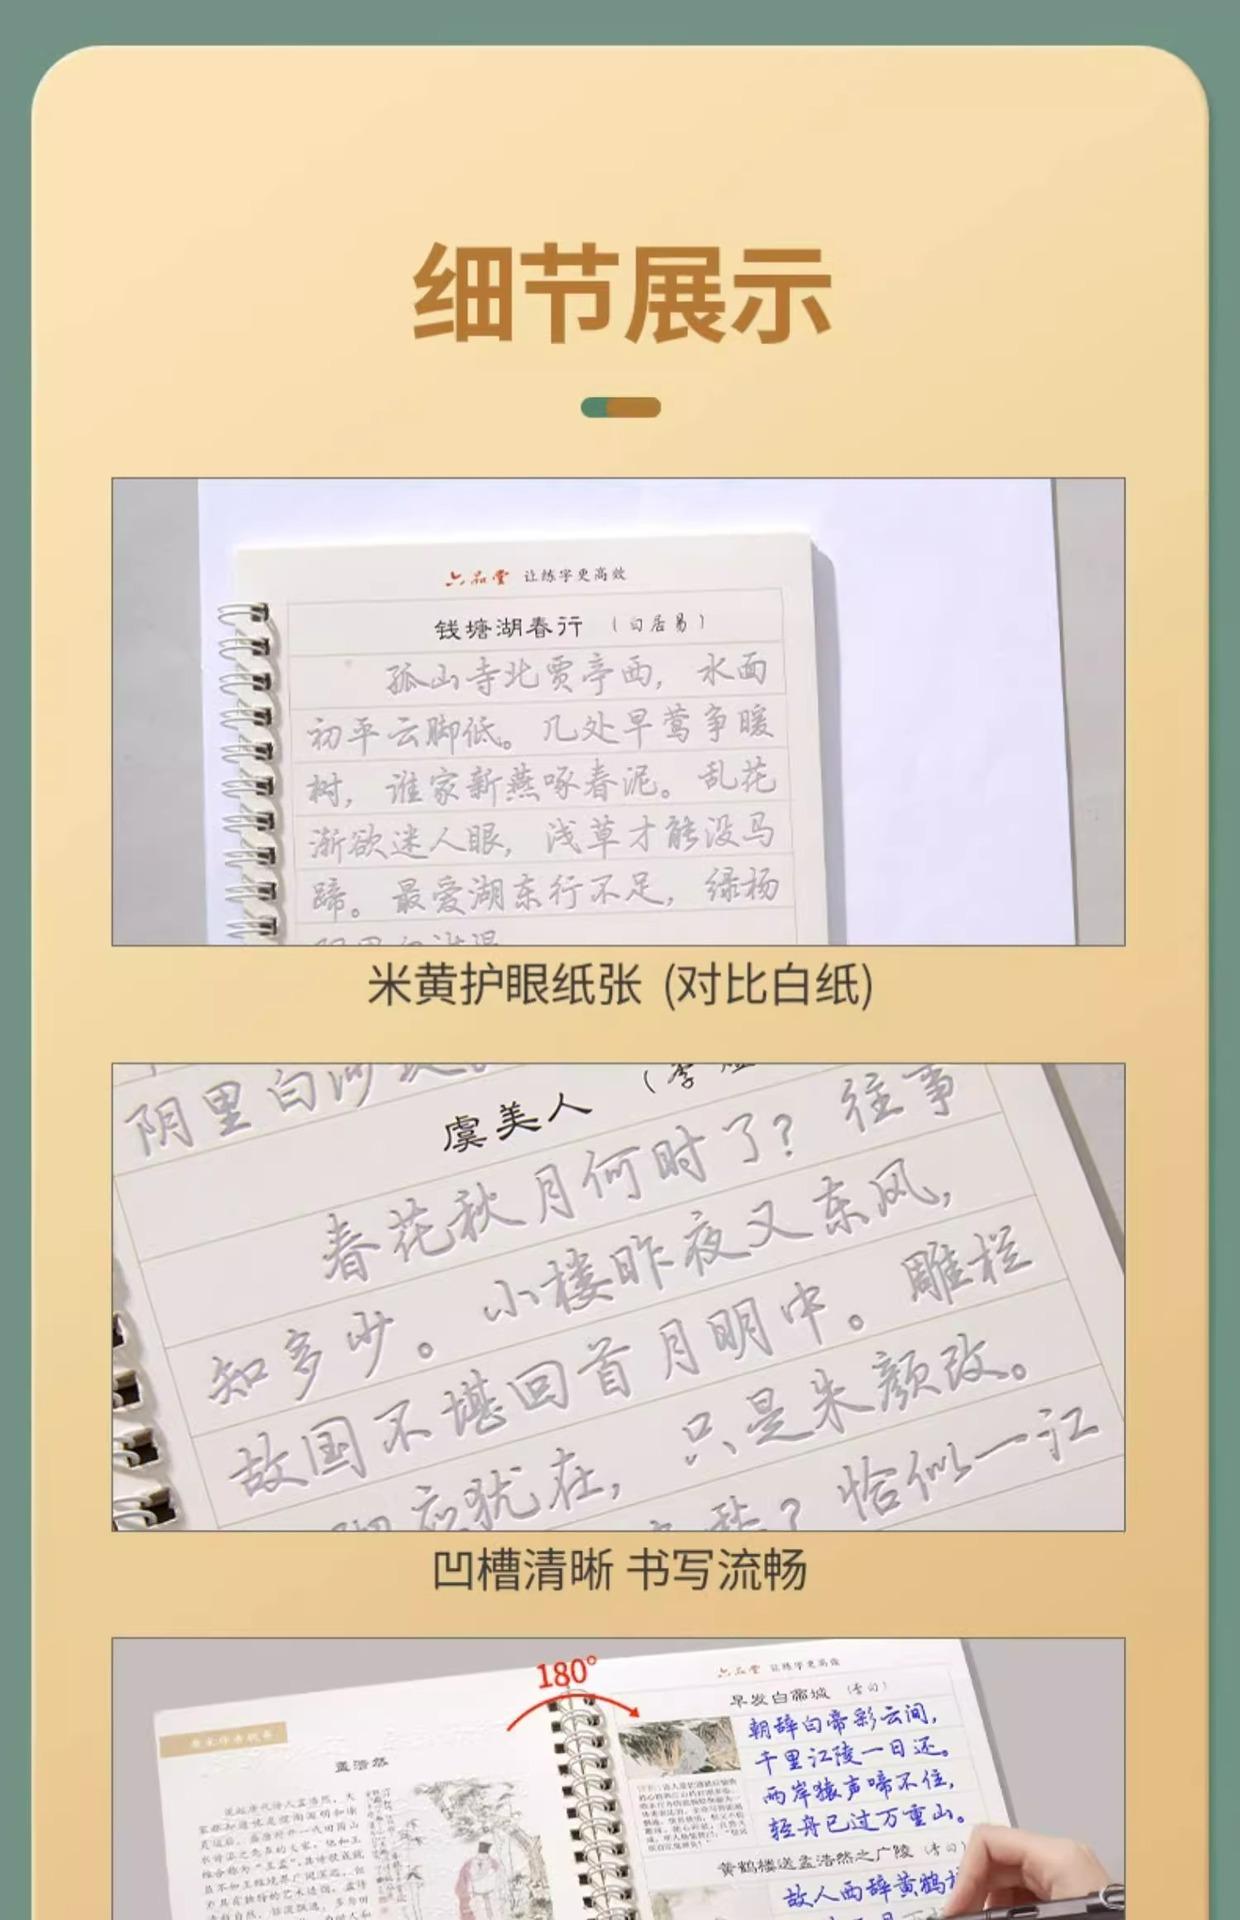 细节展示
六品堂 让练字更高效
钱塘湖春行 (白居易)
孤山寺北贾亭西，水面
初平云脚低。几处早莺争暖
树，谁家新燕啄春泥。乱花
渐欲迷人眼，浅草才能没马
蹄。最爱湖东行不足，绿杨
米黄护眼纸张 (对比白纸)
阴里白沙
虞美人 (李
春花秋月何时了？往事
知多少。小楼昨夜又东风，
故国不堪回首月明中。雕栏
应犹在，只是朱颜改。
？恰似一江
凹槽清晰 书写流畅
180°
孟浩然
六品堂 让练字更高效
早发白帝城 (李白)
朝辞白帝彩云间，
千里江陵一日还。
两岸猿声啼不住，
轻舟已过万重山。
黄鹤楼送孟浩然之广陵 (李白)
故人西辞黄鹤